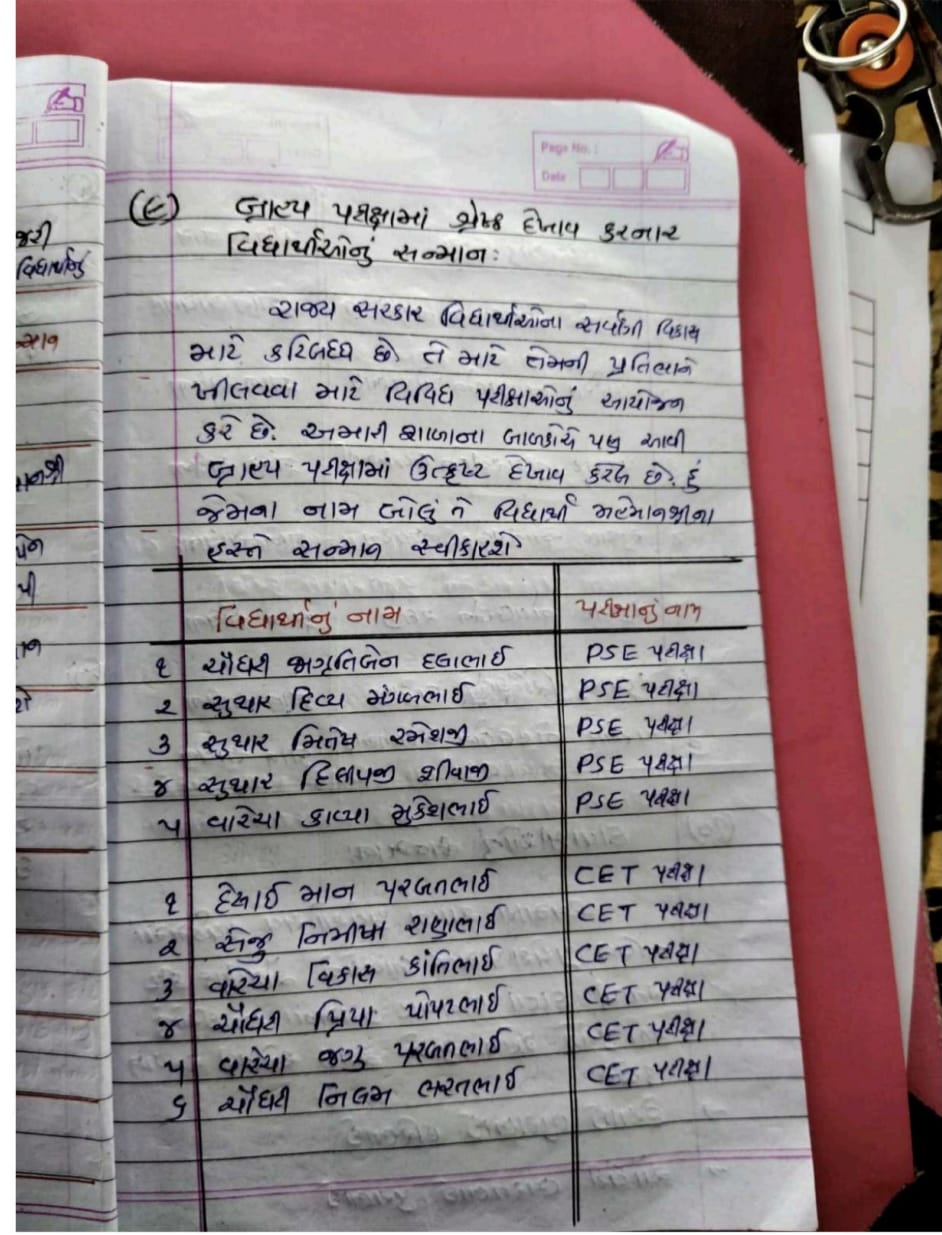 જરી
વિદ્યાર્થીનું
Page No. :
Date
(૯) બાહ્ય પરીક્ષામાં શ્રેષ્ઠ દેખાવ કરનાર
વિદ્યાર્થીઓનું સન્માન :
રાજ્ય સરકાર વિદ્યાર્થીઓના સર્વાંગી વિકાસ
માટે કટિબદ્ધ છે. તે માટે તેમની પ્રતિભાને
ખીલવવા માટે વિવિધ પરીક્ષાઓનું આયોજન
કરે છે. અમારી શાળાના બાળકોએ પણ આવી
બાહ્ય પરીક્ષામાં ઉત્કૃષ્ટ દેખાવ કરેલ છે. હું
જેમના નામ બોલું તે વિદ્યાર્થી મહેમાનશ્રીના
હસ્તે સન્માન સ્વીકારશે
વિદ્યાર્થીનું નામ પરીક્ષાનું નામ
૧ ચૌધરી જાગૃતિબેન PSE પરીક્ષા
૨ સુથાર દિવ્ય મંગળભાઈ PSE પરીક્ષા
૩ સુથાર મિતેષ રમેશજી PSE પરીક્ષા
૪ સુથાર દિલીપજી શીવાજી PSE પરીક્ષા
૫ વારેચા કાવ્યા મુકેશભાઈ PSE પરીક્ષા
૧ દેસાઈ માન પરબતભાઈ CET પરીક્ષા
૨ સેજુ નિમીષા રાણાભાઈ CET પરીક્ષા
૩ વારેચા વિકાસ કાંતિભાઈ CET પરીક્ષા
૪ ચૌધરી પ્રિયા પોપટભાઈ CET પરીક્ષા
૫ વારેચા જગુ પરબતભાઈ CET પરીક્ષા
૬ ચૌધરી નિલમ ભરતભાઈ CET પરીક્ષા